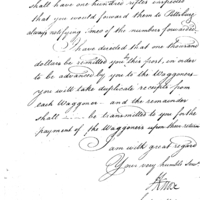 shall have one hundred rifles express
that you would forward them to Pittsburg
always notifying me of the number forwarded.
I have decided that one thousand
dollars be remitted you this post, in order
to be advanced by you to the Waggoners
you will take duplicate receipts from
each Waggoner - and the remainder
shall be transmitted to you for the
payment of the Waggoners upon their return
I am with great regard
Your very humble Serv.
HKnox